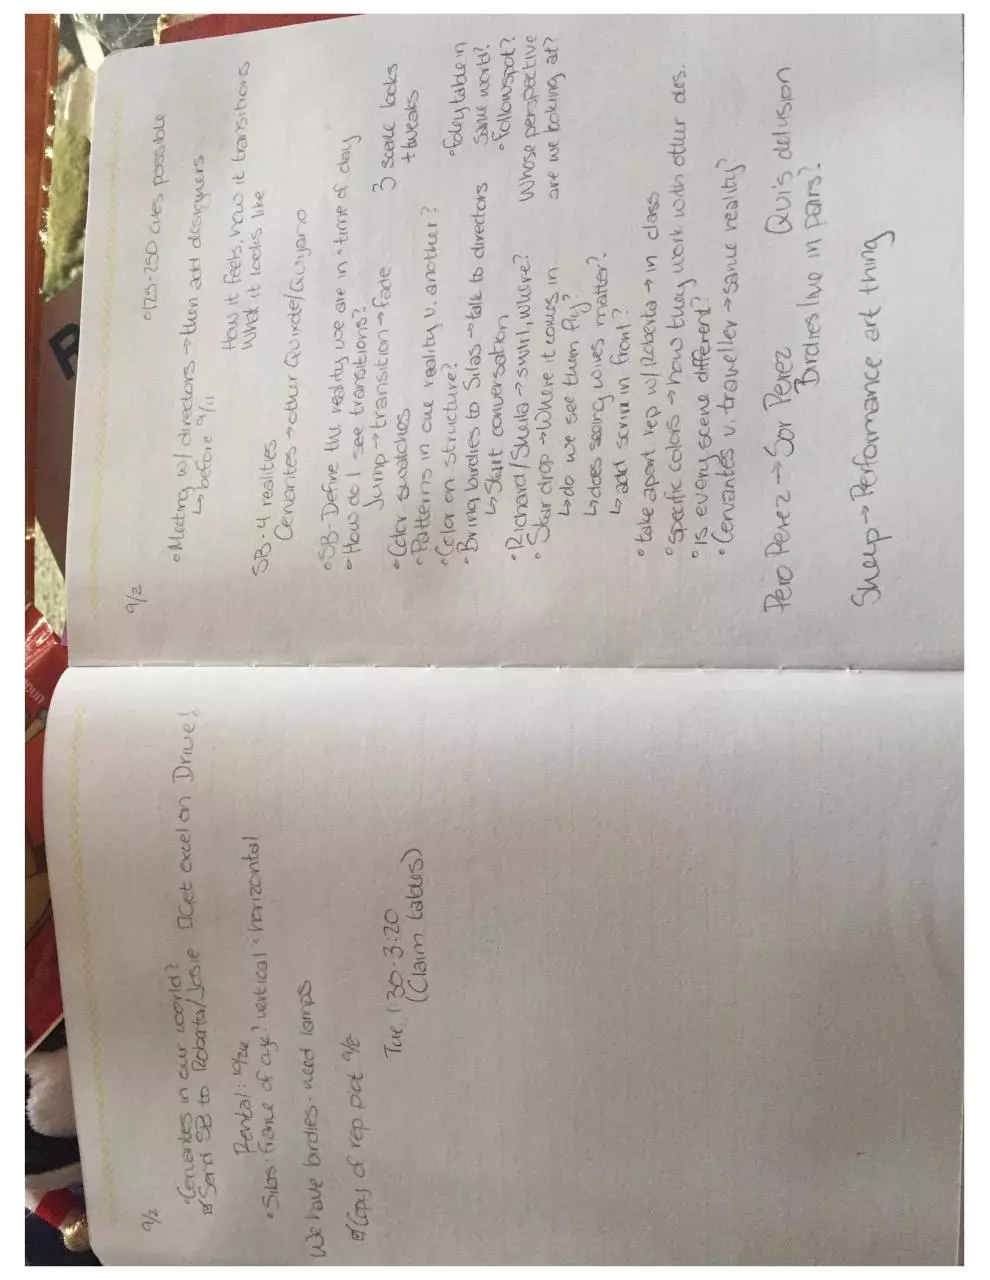 9/2
•Cervantes in our world?
☑Send SB to Roberta/Josie ☐Get excel on Drive!
Rental: 10/26
•Silas: Frame of cyc? vertical : horizontal
We have birdies - need lamps
☑Copy of rep plot 9/2
Tue, 1:30-3:20
(Claim tables)
9/2
•125-250 cues possible
•Meeting w/ directors → then add designers
↳ before 9/11
How it feels, how it transitions
What it looks like
SB - 4 realities
Cervantes → other Quixote/Quijano
•SB- Define the reality we are in : time of day
•How do I see transitions?
Jump → transition → fade
•Color swatches
3 scene looks
+ tweaks
•Patterns in one reality v. another?
•Color on structure?
•Bring birdies to Silas → talk to directors
↳ Start conversation
•Foley table in
same world?
•Followspot?
•Richard/Sheila → swirl, where?
•Star drop → Where it comes in
Whose perspective
are we looking at?
↳ do we see them fly?
↳ does seeing wires matter?
↳ add scrim in front?
•take apart rep w/ Roberta → in class
•Specific colors → how they work with other des.
•Is every scene different?
•Cervantes v. traveller → same reality?
Pero Perez → Sor Perez
Qui's delusion
Birdies live in pairs?
Sheep → Performance art thing